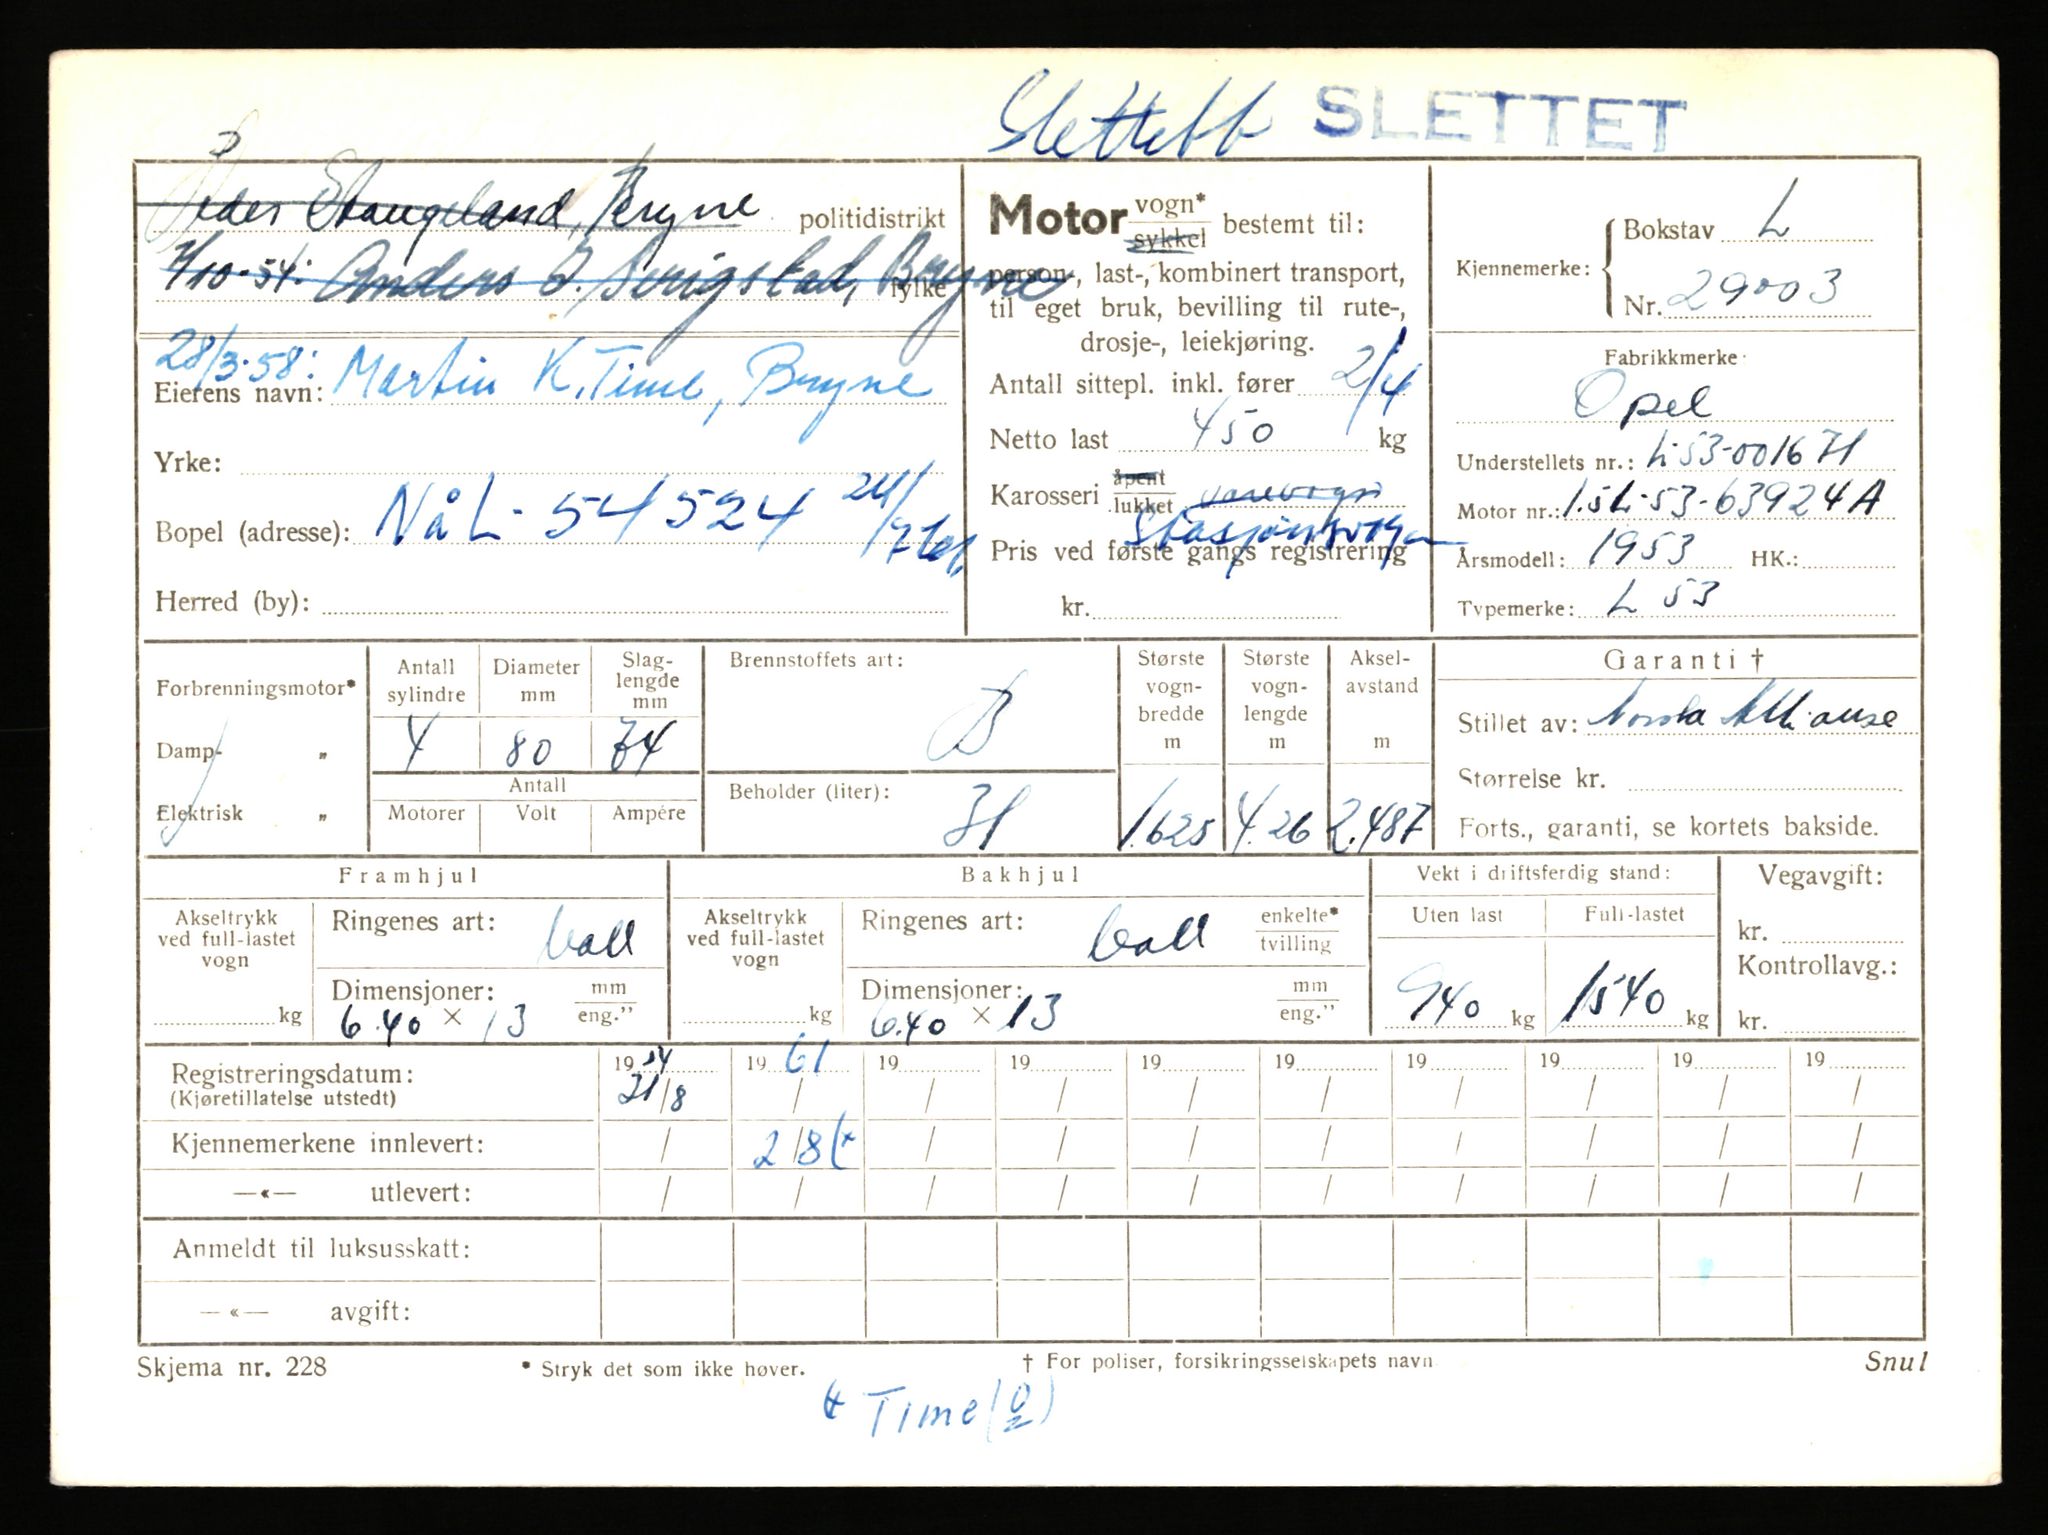 Slettebb SLETTET
Peder Stangeland, Bryne politidistrikt
7/10-54: Anders J. Serigstad, Bryne fylke
28/3-58:
Eierens navn: Martin K. Time, Bryne
Yrke:
Bopel (adresse): Nå L-54524 24/7-61.
Herred (by):
Motor vogn* sykkel bestemt til:
person-, last-, kombinert transport,
til eget bruk, bevilling til rute-,
drosje-, leiekjøring.
Antall sittepl. inkl. fører 2/4
Netto last 450 kg
Karosseri åpent lukket varevogn
Stasjonsvogn
Pris ved første gangs registrering
kr.
Kjennemerke: Bokstav L
Nr. 29003
Fabrikkmerke:
Opel
Understellets nr.: L-53-001671
Motor nr.: 1.5L-53-63924A
Årsmodell: 1953 HK.:
Typemerke: L 53
Forbrenningsmotor*
Damp- „
Elektrisk „
Antall sylindre Diameter mm Slaglengde mm
4 80 74
Antall
Motorer Volt Ampére
Brennstoffets art: B
Beholder (liter): 31
Største vognbredde m 1.625
Største vognlengde m 4.26
Akselavstand m 2.487
Garanti †
Stillet av: Norska Allianse
Størrelse kr.
Forts., garanti, se kortets bakside.
Framhjul
Akseltrykk ved full-lastet vogn kg
Ringenes art: ball
Dimensjoner: mm eng."
6.40 × 13
Bakhjul
Akseltrykk ved full-lastet vogn kg
Ringenes art: ball enkelte* tvilling
Dimensjoner: mm eng."
6.40 × 13
Vekt i driftsferdig stand:
Uten last Full-lastet
940 kg 1540 kg
Vegavgift:
kr.
Kontrollavg.:
kr.
Registreringsdatum: 1954 1961 19 19 19 19 19 19 19 19
(Kjøretillatelse utstedt) 31/8 / / / / / / / / /
Kjennemerkene innlevert: / 2/8 (* / / / / / / / /
—«— utlevert: / / / / / / / / / /
Anmeldt til luksusskatt:
—«— avgift:
Skjema nr. 228 * Stryk det som ikke høver. † For poliser, forsikringsselskapets navn Snul
* Time (0/2)